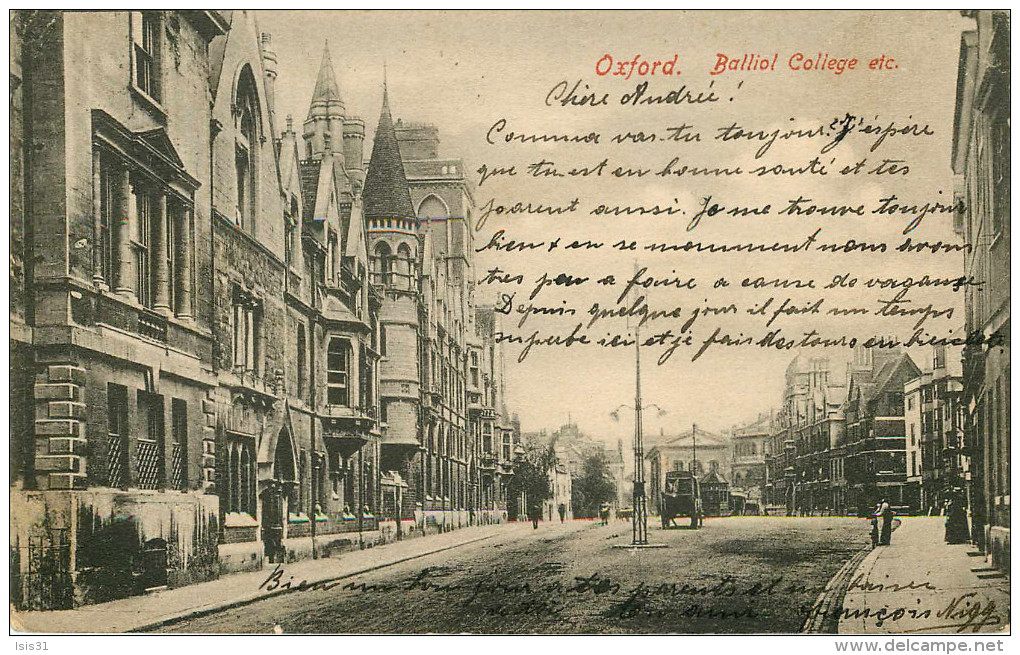 Oxford. Balliol College etc.
Chère Andrée!
Comma vas-tu toujour? J'éspère
que tu est en bonne santé et tes
parent aussi. Je me trouve toujour
bien & en se momument nous avons
tres peu a faire a cause de vaganse
Depuis quelque jour il fait un temps
superbe ici et je fais des tours en biciclete
Bien un bon jour a tes parents et un baiser
de ton ami François Nigg
Isis31
www.delcampe.net